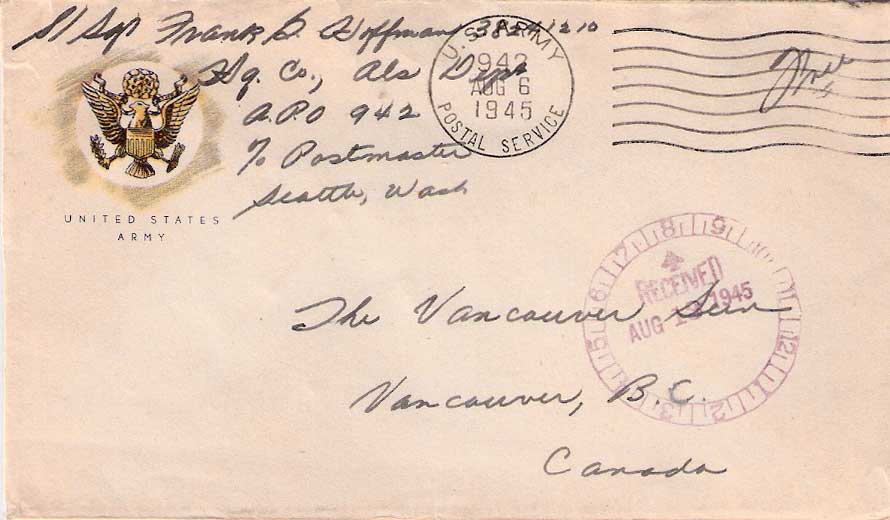 S/Sgt Frank G. Hoffman
Hq. Co., Als Dept
A.P.O 942
% Postmaster
Seattle, Wash
U.S. ARMY
942
AUG 6
1945
POSTAL SERVICE
Free
UNITED STATES
ARMY
5 6 7 8 9 10 11 12 1 2 3
RECEIVED
AUG 1945
The Vancouver Sun
Vancouver, B.C.
Canada